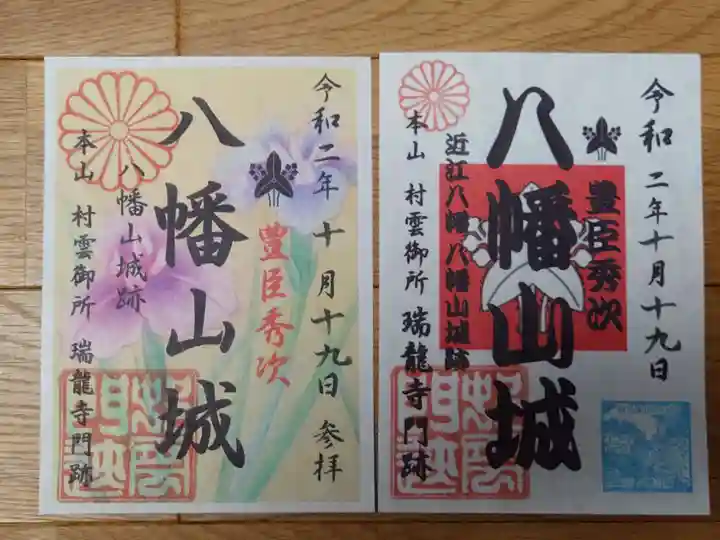 令和二年 十月十九日 参拝
豊臣秀次
八幡山城
八幡山城跡
本山 村雲御所 瑞龍寺門跡
令和二年十月十九日
豊臣秀次
八幡山城
近江八幡 八幡山城跡
本山 村雲御所 瑞龍寺門跡